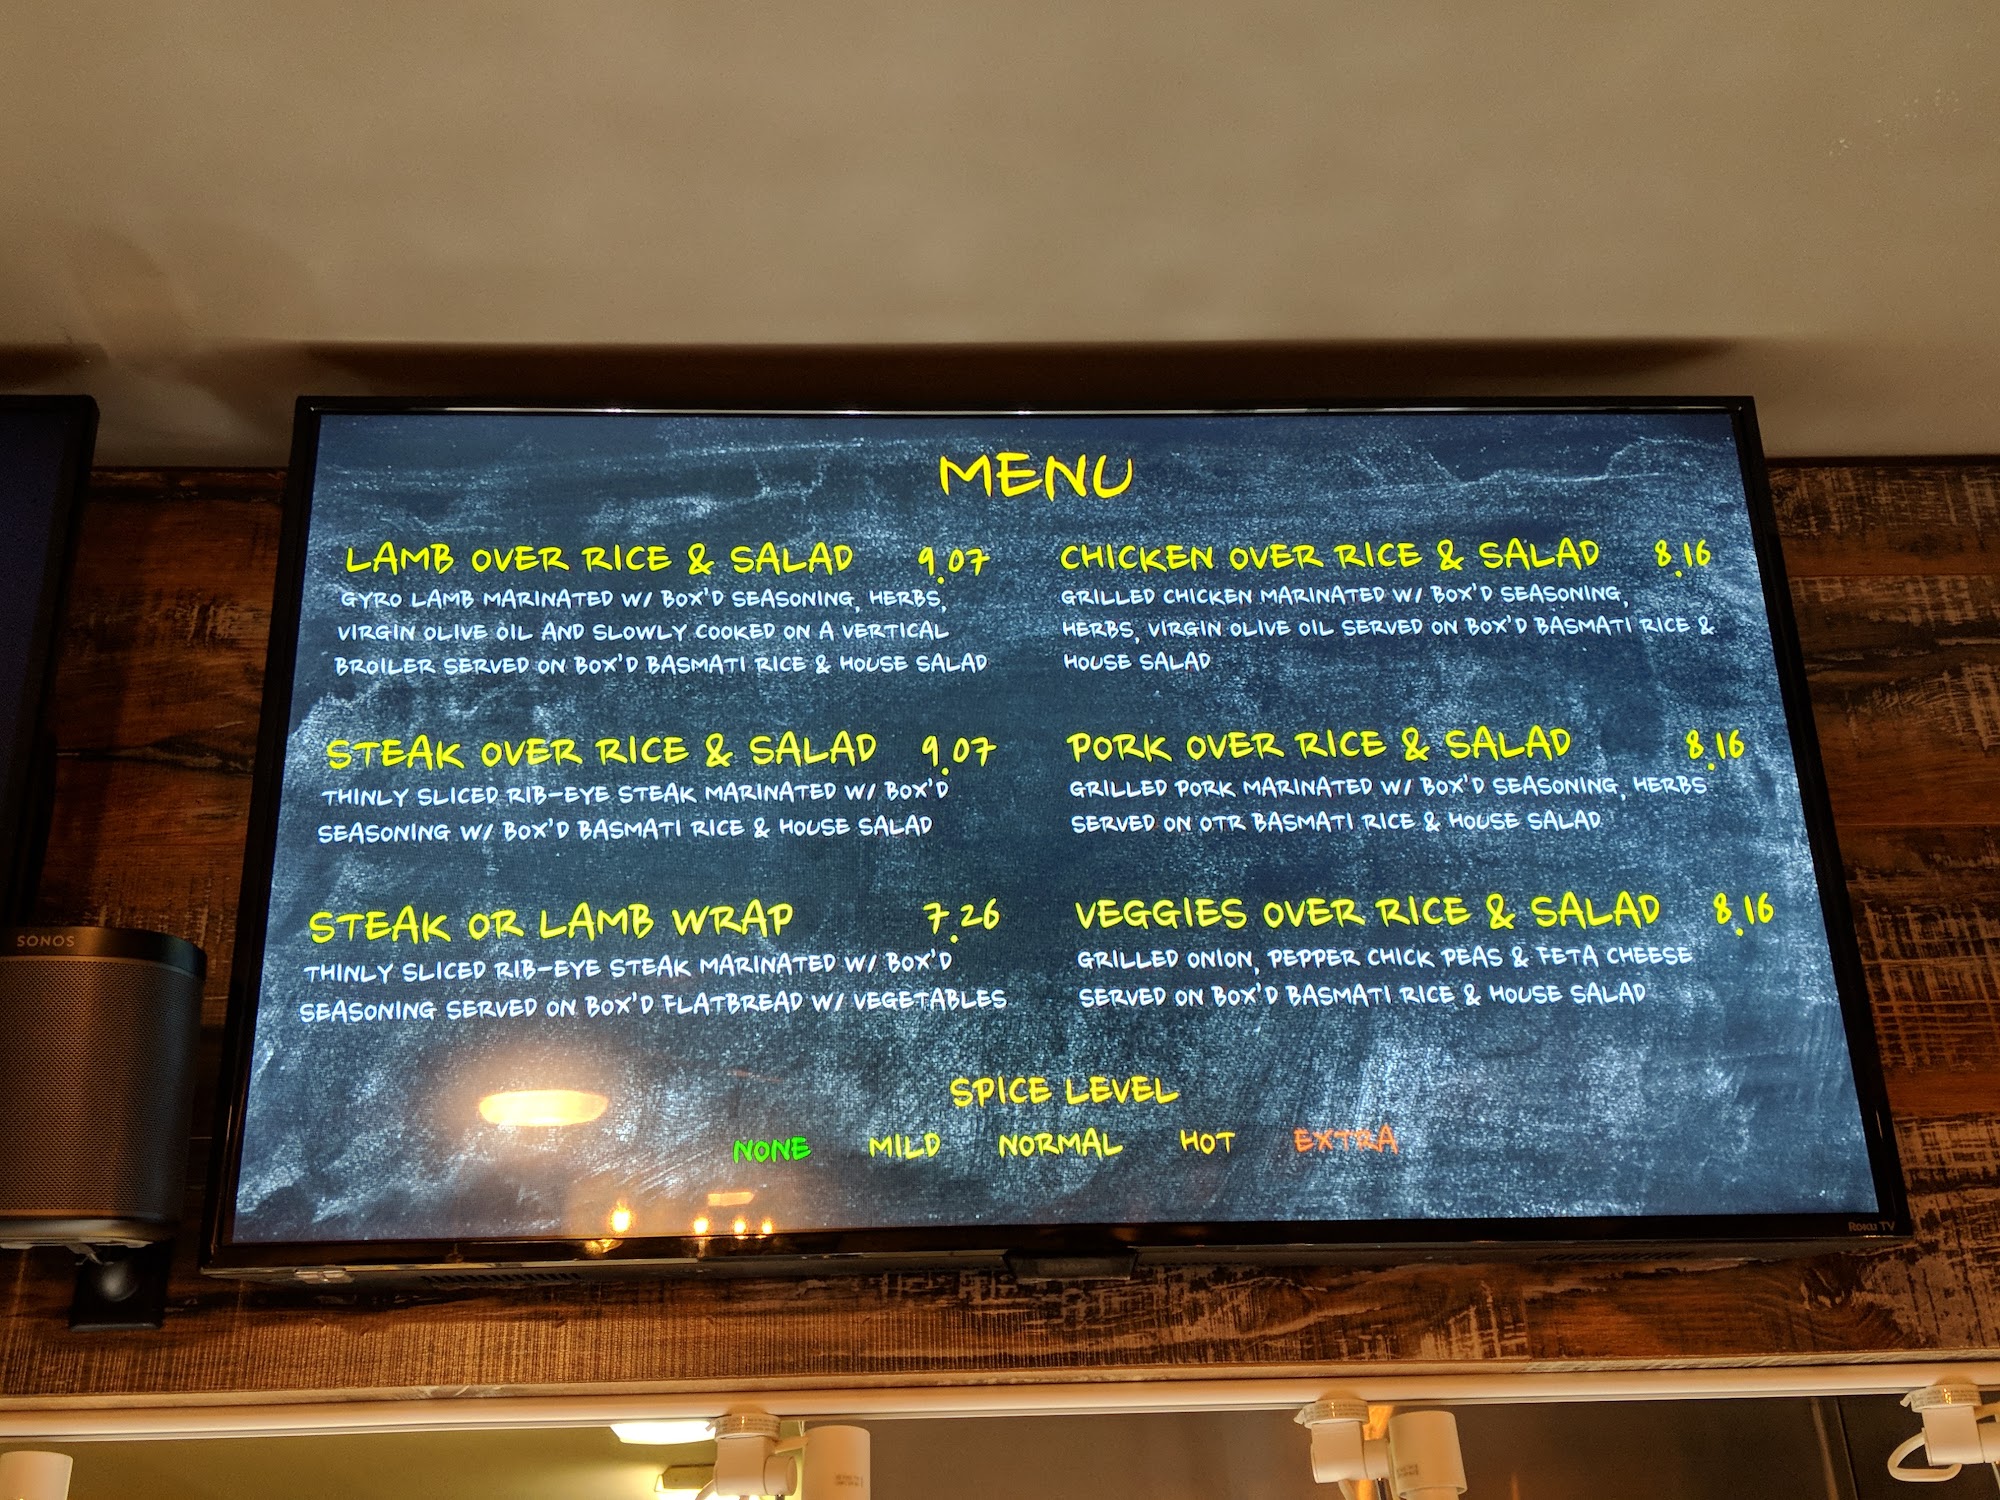 MENU
LAMB OVER RICE & SALAD 9.07
GYRO LAMB MARINATED W/ BOX'D SEASONING, HERBS,
VIRGIN OLIVE OIL AND SLOWLY COOKED ON A VERTICAL
BROILER SERVED ON BOX'D BASMATI RICE & HOUSE SALAD
STEAK OVER RICE & SALAD 9.07
THINLY SLICED RIB-EYE STEAK MARINATED W/ BOX'D
SEASONING W/ BOX'D BASMATI RICE & HOUSE SALAD
STEAK OR LAMB WRAP 7.26
THINLY SLICED RIB-EYE STEAK MARINATED W/ BOX'D
SEASONING SERVED ON BOX'D FLATBREAD W/ VEGETABLES
CHICKEN OVER RICE & SALAD 8.16
GRILLED CHICKEN MARINATED W/ BOX'D SEASONING,
HERBS, VIRGIN OLIVE OIL SERVED ON BOX'D BASMATI RICE &
HOUSE SALAD
PORK OVER RICE & SALAD 8.16
GRILLED PORK MARINATED W/ BOX'D SEASONING, HERBS
SERVED ON OTR BASMATI RICE & HOUSE SALAD
VEGGIES OVER RICE & SALAD 8.16
GRILLED ONION, PEPPER CHICK PEAS & FETA CHEESE
SERVED ON BOX'D BASMATI RICE & HOUSE SALAD
SPICE LEVEL
NONE MILD NORMAL HOT EXTRA
SONOS
ROKU TV